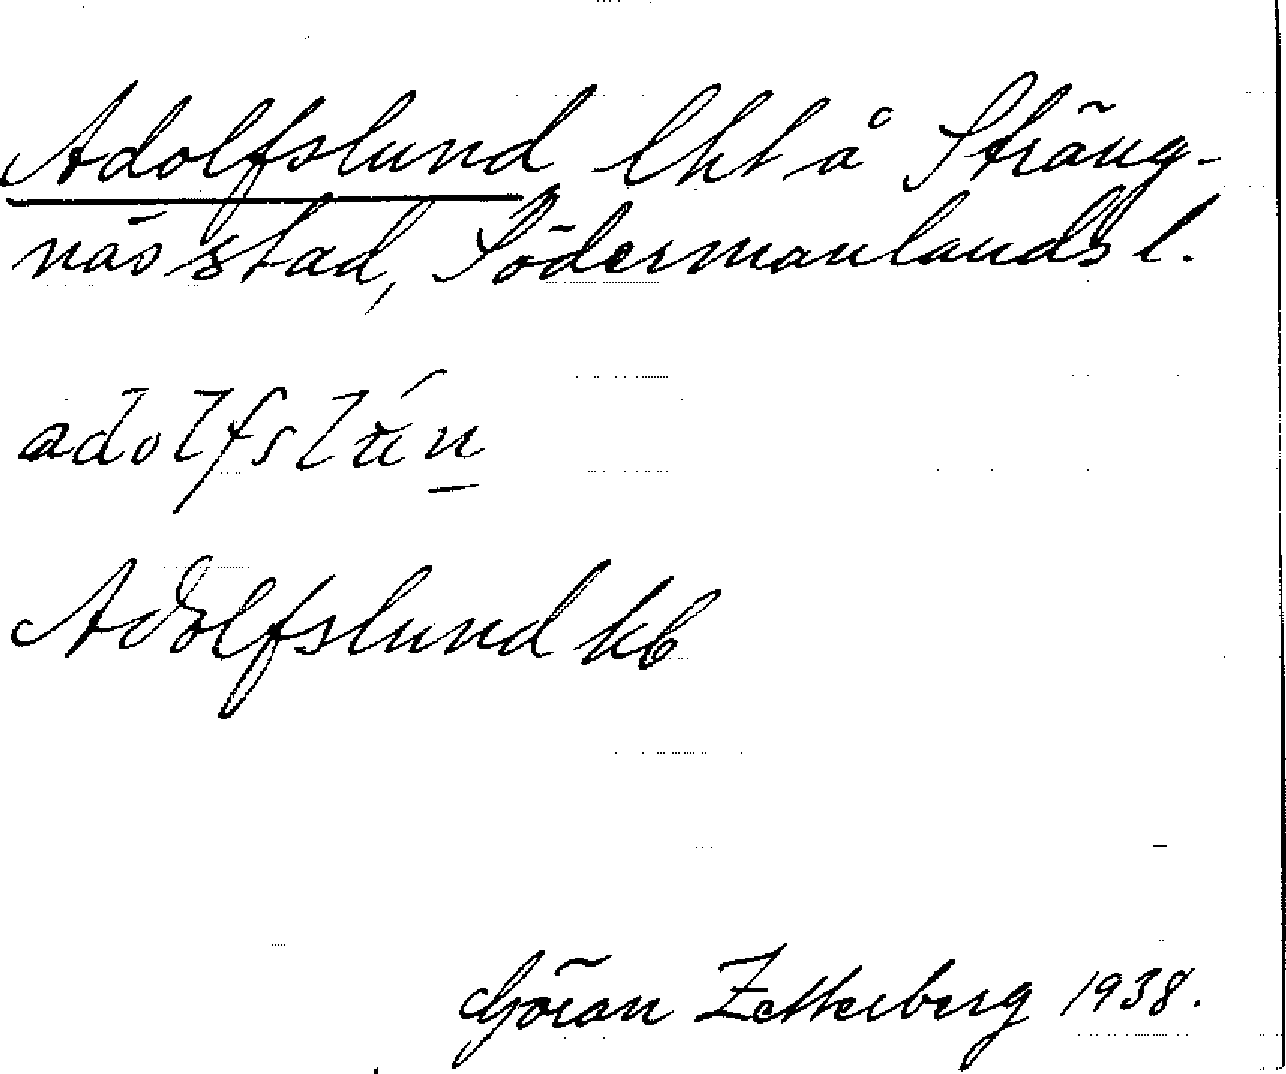 Adolfslund lht å Sträng-
näs stad, Södermanlands l.
adolfslún
Adolfslund kb
Göran Zetterberg 1938.